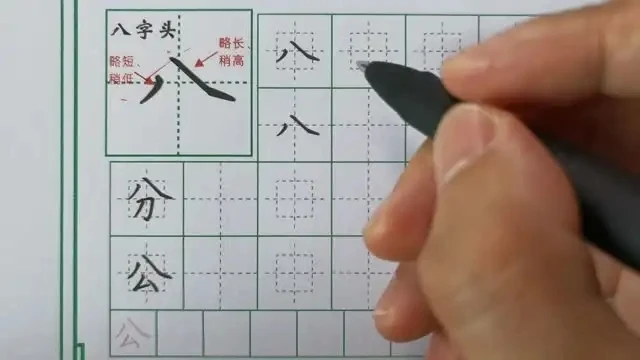 八字头
略短、
稍低
略长、
稍高
八
八
八
分
公
公